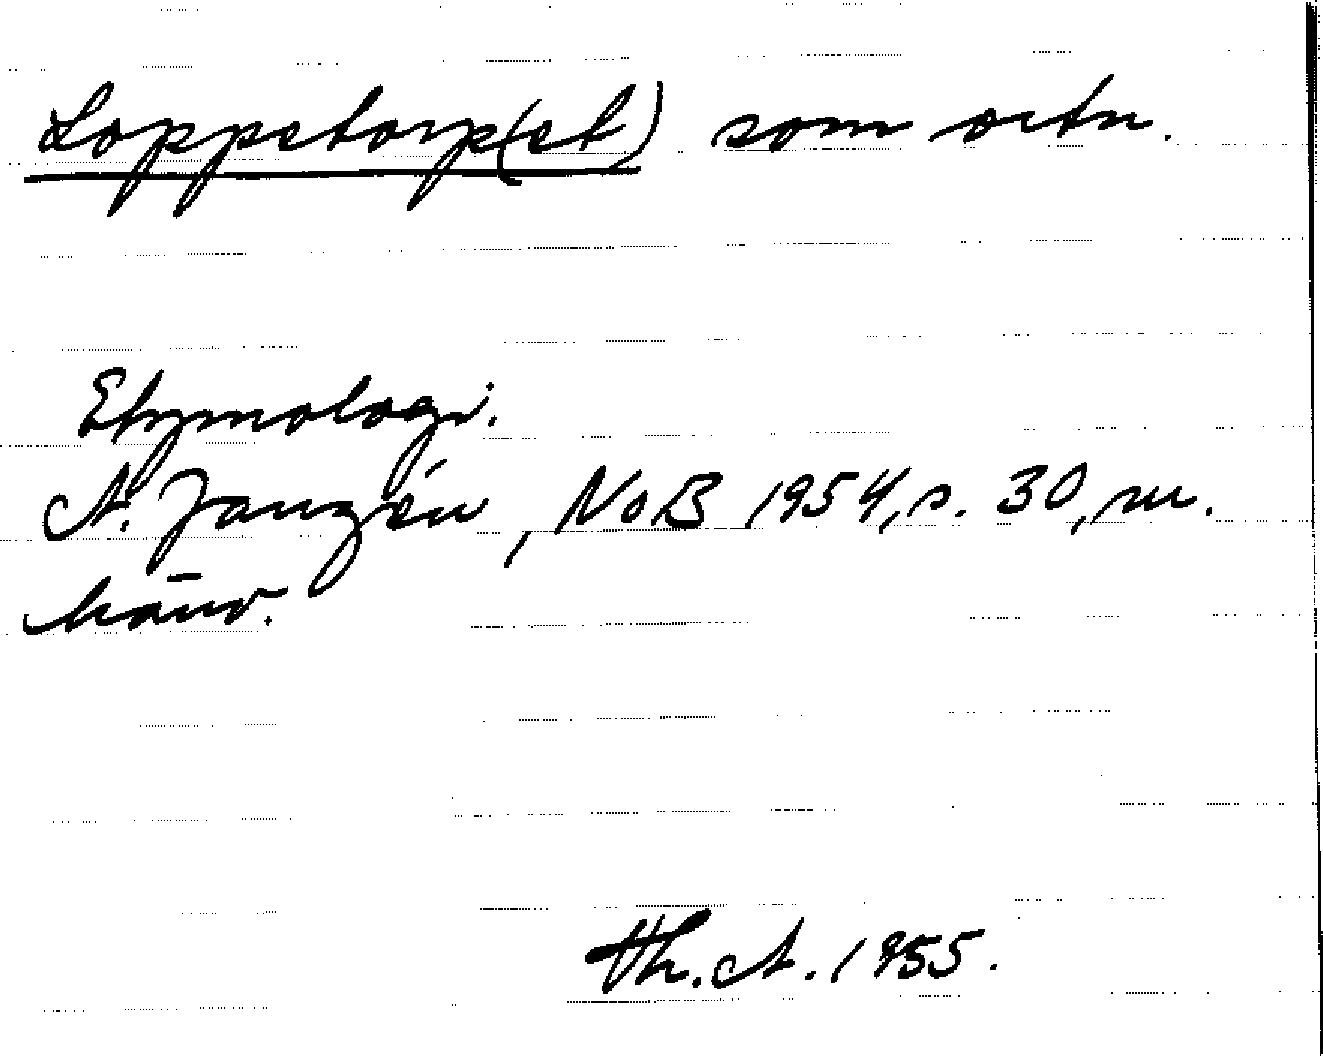 Loppetorp(et) som ortn.
Etymologi.
A. Janzén, NoB 1954, s. 30, m.
hänv.
Th. A. 1955.